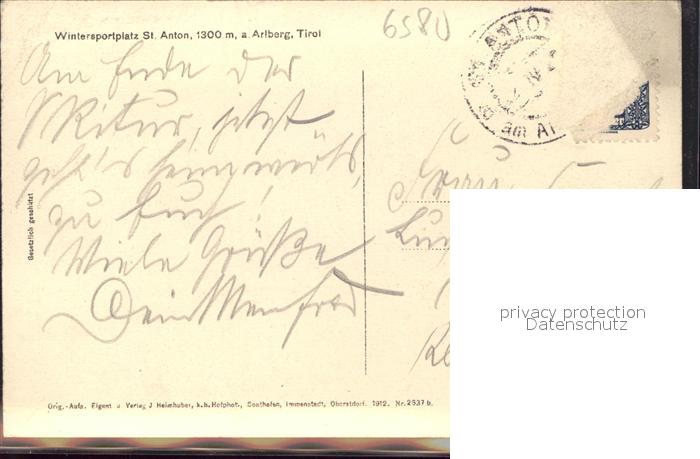 Wintersportplatz St. Anton, 1300 m, a. Arlberg, Tirol
6580
ST. ANTON
am Ar
Am Ende der
Skitur, jetzt
geht's heimwärts,
zu Euch!
Viele Grüße
Dein Manfred
Frau
Gesetzlich geschützt
privacy protection
Datenschutz
Orig.-Aufn. Eigent u Verlag J Heimhuber, k.b. Hofphot., Sonthofen, Immenstadt, Oberstdorf. 1912. Nr. 2537 b.